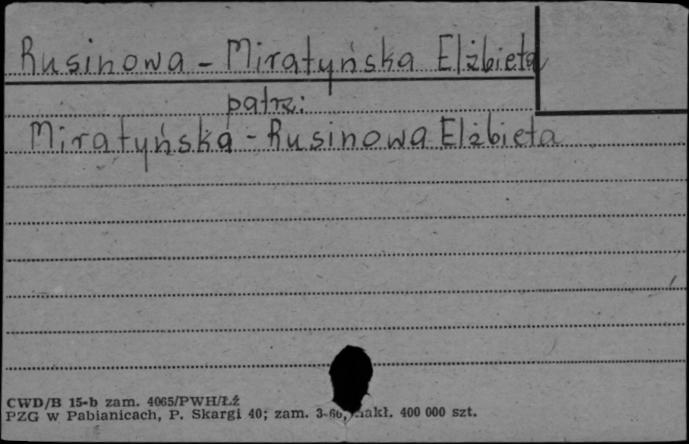 Rusinowa - Miratyńska Elżbieta
patrz:
Miratyńska - Rusinowa Elżbieta
CWD/B 15-b zam. 4065/PWH/ŁŹ
PZG w Pabianicach, P. Skargi 40; zam. 3-66, nakł. 400 000 szt.